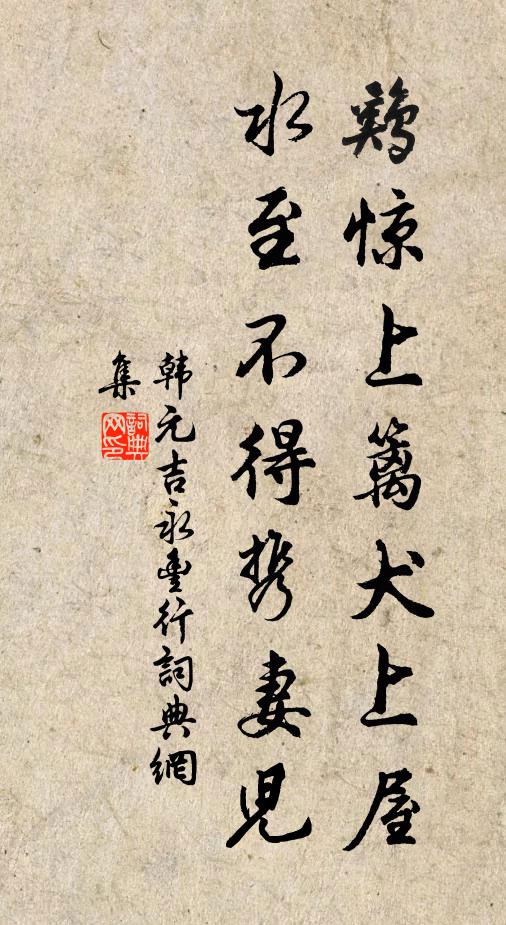 鷄惊上篱犬上屋
水至不得携妻児
韩元吉永豊行詞典網
集
詞典
网印